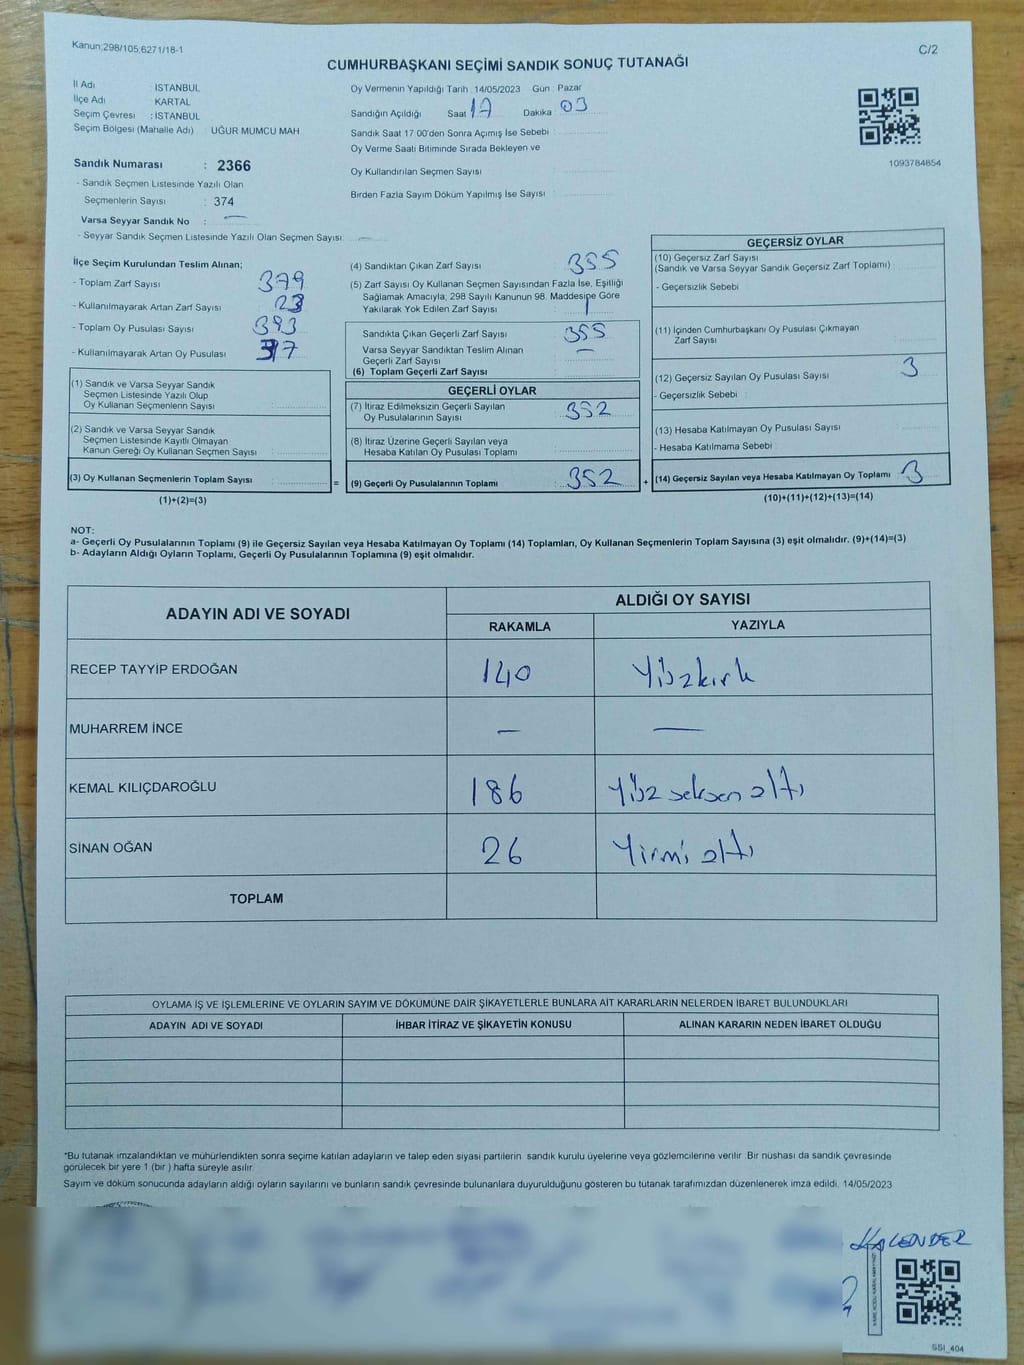 Kanun;298/105,6271/18-1
C/2
CUMHURBAŞKANI SEÇİMİ SANDIK SONUÇ TUTANAĞI
İl Adı İSTANBUL
İlçe Adı KARTAL
Seçim Çevresi : İSTANBUL
Seçim Bölgesi (Mahalle Adı) : UĞUR MUMCU MAH
Sandık Numarası : 2366
- Sandık Seçmen Listesinde Yazılı Olan
Seçmenlerin Sayısı : 374
Varsa Seyyar Sandık No : —
- Seyyar Sandık Seçmen Listesinde Yazılı Olan Seçmen Sayısı: —
Oy Vermenin Yapıldığı Tarih : 14/05/2023 Gün : Pazar
Sandığın Açıldığı Saat 17 Dakika 03
Sandık Saat 17:00'den Sonra Açımış İse Sebebi :
Oy Verme Saati Bitiminde Sırada Bekleyen ve
Oy Kullandırılan Seçmen Sayısı :
Birden Fazla Sayım Döküm Yapılmış İse Sayısı :
1093784854
İlçe Seçim Kurulundan Teslim Alınan;
- Toplam Zarf Sayısı : 379
- Kullanılmayarak Artan Zarf Sayısı : 23
- Toplam Oy Pusulası Sayısı : 393
- Kullanılmayarak Artan Oy Pusulası :
(1) Sandık ve Varsa Seyyar Sandık
Seçmen Listesinde Yazılı Olup
Oy Kullanan Seçmenlerin Sayısı :
(2) Sandık ve Varsa Seyyar Sandık
Seçmen Listesinde Kayıtlı Olmayan
Kanun Gereği Oy Kullanan Seçmen Sayısı :
(3) Oy Kullanan Seçmenlerin Toplam Sayısı :
(1)+(2)=(3)
=
(4) Sandıktan Çıkan Zarf Sayısı : 355
(5) Zarf Sayısı Oy Kullanan Seçmen Sayısından Fazla İse, Eşitliği
Sağlamak Amacıyla, 298 Sayılı Kanunun 98. Maddesipe Göre
Yakılarak Yok Edilen Zarf Sayısı : 1
Sandıkta Çıkan Geçerli Zarf Sayısı : 355
Varsa Seyyar Sandıktan Teslim Alınan
Geçerli Zarf Sayısı : —
(6) Toplam Geçerli Zarf Sayısı
GEÇERLİ OYLAR
(7) İtiraz Edilmeksizin Geçerli Sayılan
Oy Pusulalarının Sayısı : 352
(8) İtiraz Üzerine Geçerli Sayılan veya
Hesaba Katılan Oy Pusulası Toplamı :
(9) Geçerli Oy Pusulalarının Toplamı : 352
+
GEÇERSİZ OYLAR
(10) Geçersiz Zarf Sayısı :
(Sandık ve Varsa Seyyar Sandık Geçersiz Zarf Toplamı)
- Geçersizlik Sebebi :
(11) İçinden Cumhurbaşkanı Oy Pusulası Çıkmayan
Zarf Sayısı :
(12) Geçersiz Sayılan Oy Pusulası Sayısı : 3
- Geçersizlik Sebebi :
(13) Hesaba Katılmayan Oy Pusulası Sayısı :
- Hesaba Katılmama Sebebi :
(14) Geçersiz Sayılan veya Hesaba Katılmayan Oy Toplamı : 3
(10)+(11)+(12)+(13)=(14)
NOT:
a- Geçerli Oy Pusulalarının Toplamı (9) ile Geçersiz Sayılan veya Hesaba Katılmayan Oy Toplamı (14) Toplamları, Oy Kullanan Seçmenlerin Toplam Sayısına (3) eşit olmalıdır. (9)+(14)=(3)
b- Adayların Aldığı Oyların Toplamı, Geçerli Oy Pusulalarının Toplamına (9) eşit olmalıdır.
ADAYIN ADI VE SOYADI ALDIĞI OY SAYISI
RAKAMLA YAZIYLA
RECEP TAYYİP ERDOĞAN 140 Yüzkırk
MUHARREM İNCE — —
KEMAL KILIÇDAROĞLU 186 Yüz seksen altı
SİNAN OĞAN 26 Yirmi altı
TOPLAM
OYLAMA İŞ VE İŞLEMLERİNE VE OYLARIN SAYIM VE DÖKÜMÜNE DAİR ŞİKAYETLERLE BUNLARA AİT KARARLARIN NELERDEN İBARET BULUNDUKLARI
ADAYIN ADI VE SOYADI İHBAR İTİRAZ VE ŞİKAYETİN KONUSU ALINAN KARARIN NEDEN İBARET OLDUĞU
*Bu tutanak imzalandıktan ve mühürlendikten sonra seçime katılan adayların ve talep eden siyasi partilerin sandık kurulu üyelerine veya gözlemcilerine verilir. Bir nüshası da sandık çevresinde
görülecek bir yere 1 (bir ) hafta süreyle asılır.
Sayım ve döküm sonucunda adayların aldığı oyların sayılarını ve bunların sandık çevresinde bulunanlara duyurulduğunu gösteren bu tutanak tarafımızdan düzenlenerek imza edildi. 14/05/2023
KALENDER
SSI_404